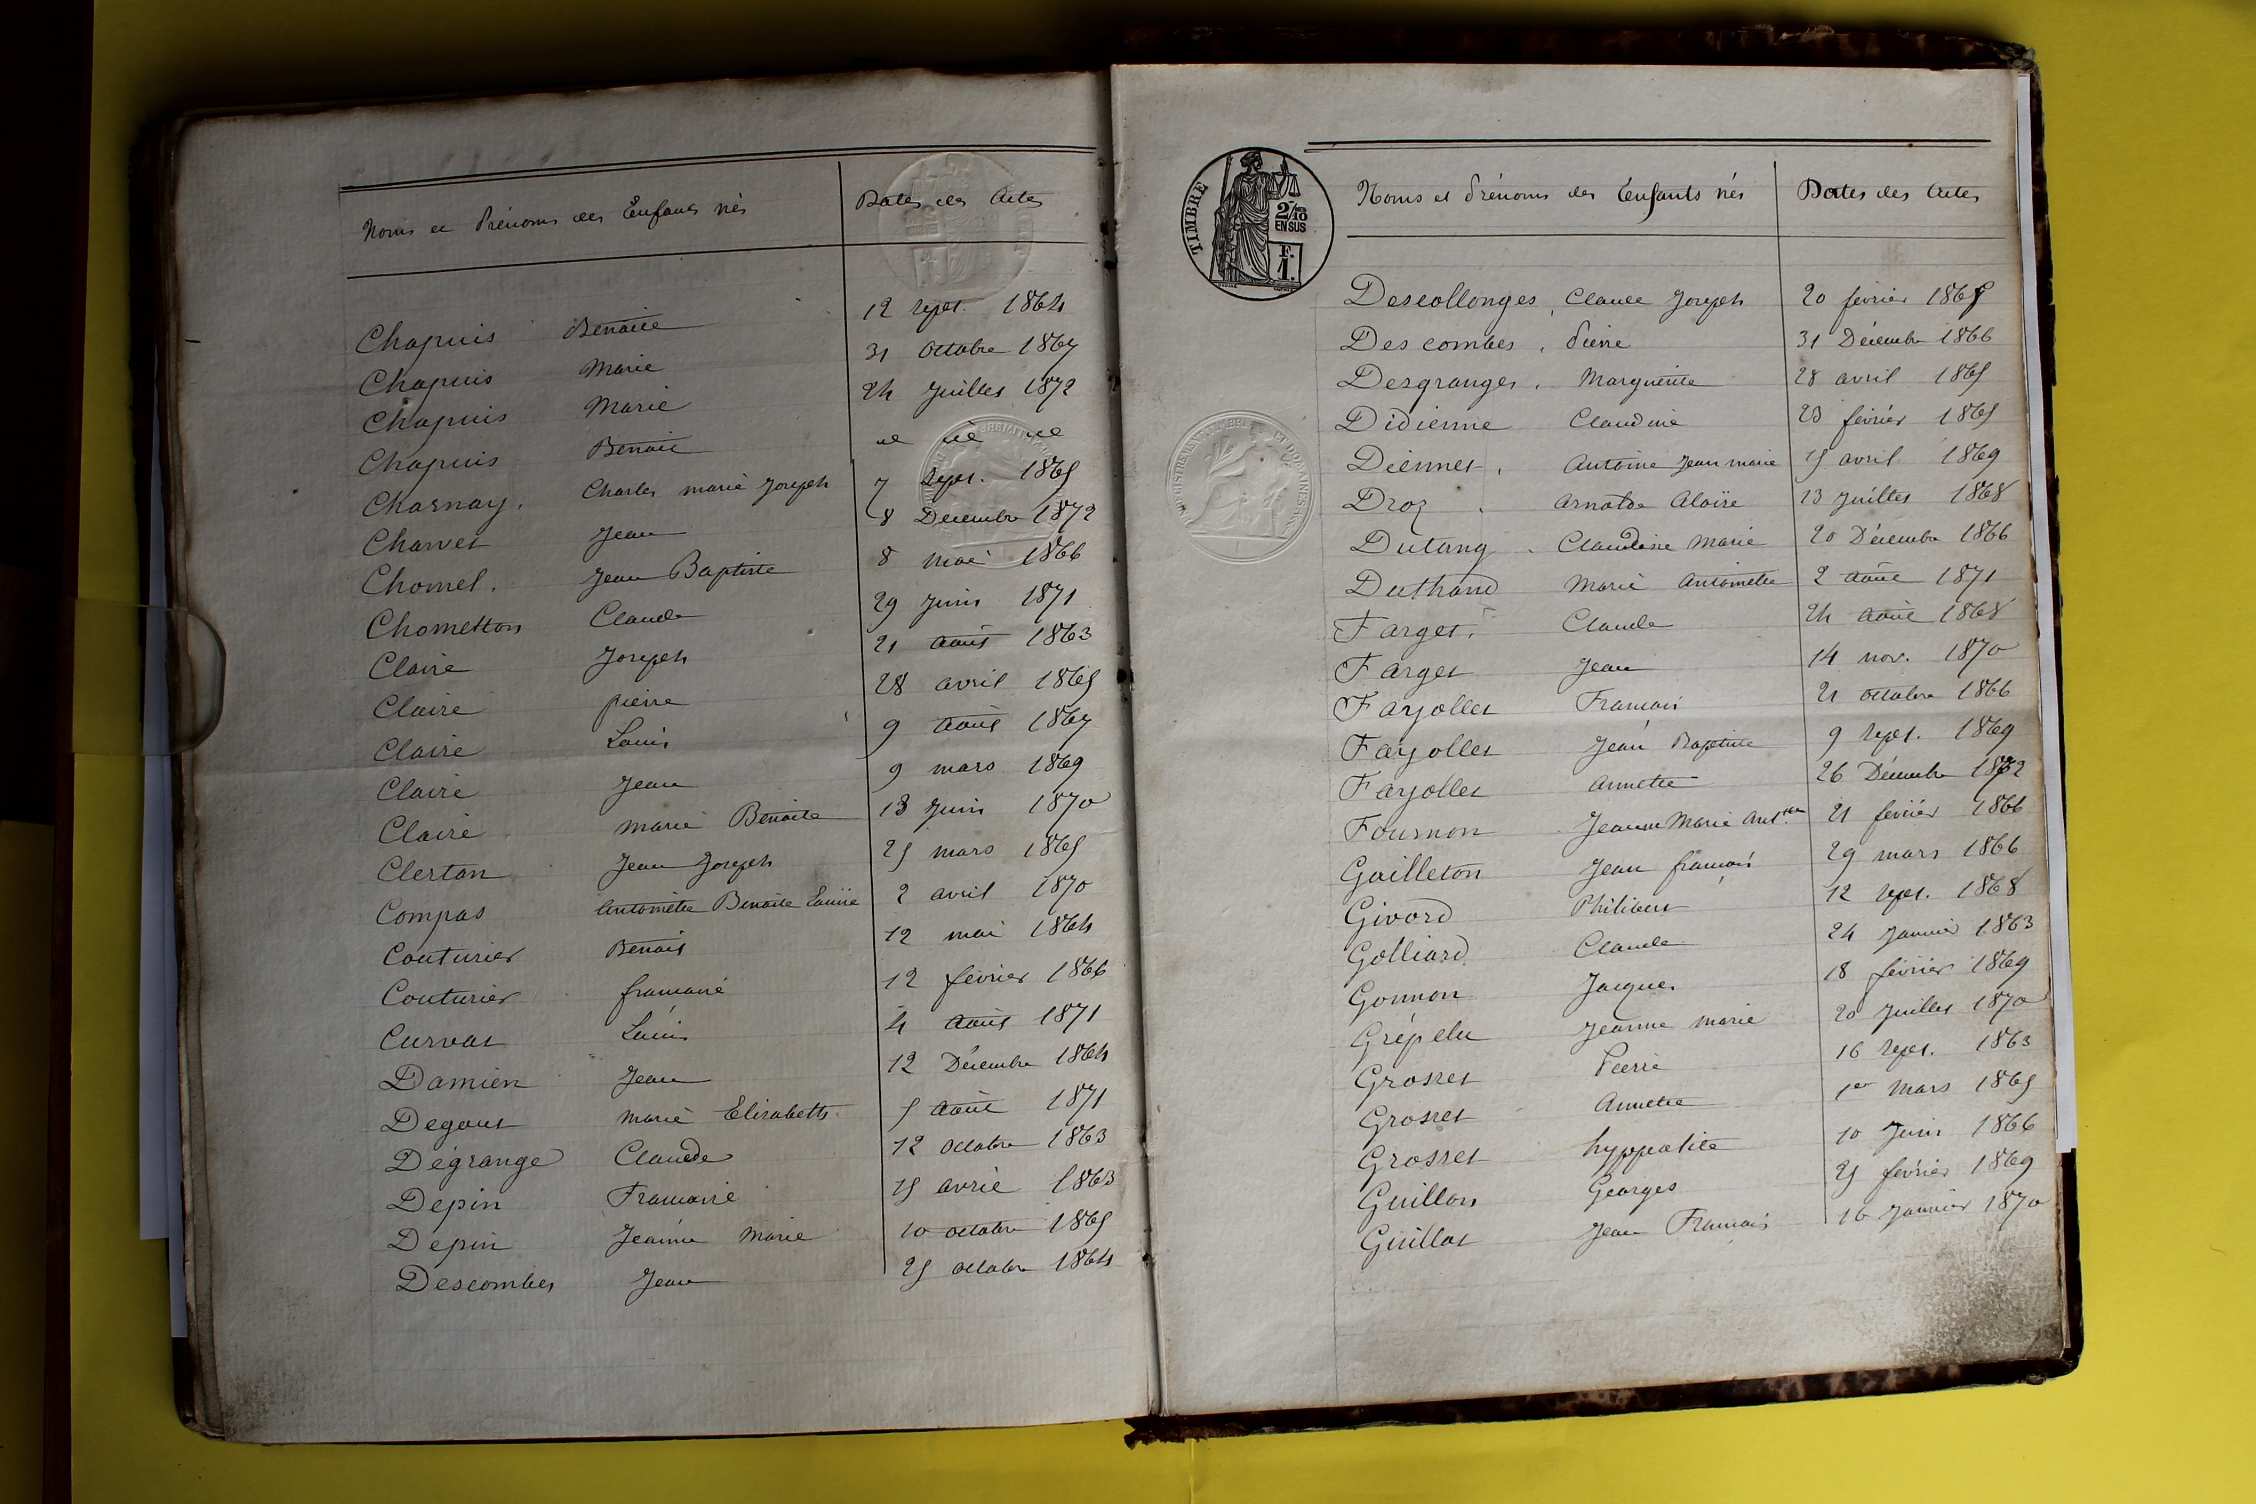 Noms et Prénoms des Enfants nés Dates des Actes
Chapuis Benoite 12 sept. 1864
Chapuis Marie 31 Octobre 1867
Chapuis Marie 24 Juillet 1872
Chapuis Benoit
Charnay. Charles marie Joseph 7 Sept. 1865
Charvet Jean 8 Décembre 1872
Chomel. Jean Baptiste 8 mai 1866
Chometton Claude 29 Juin 1871
Claire Joseph 21 Août 1863
Claire pierre 28 avril 1865
Claire Louis 9 Août 1867
Claire Jean 9 mars 1869
Claire marie Benoite 13 Juin 1870
Clerton Jean Joseph 25 mars 1865
Compas Antoinette Benoite 2 avril 1870
Couturier Benoit 12 mai 1864
Couturier 12 février 1866
Curvat Louis 4 Août 1871
Damien Jean 12 Décembre 1864
Degout marie Elisabeth 5 Août 1871
Dégrange Claude 12 Octobre 1863
Depin 15 avril 1863
Depin Jeanne Marie 10 octobre 1865
Descombes Jean 25 octobre 1864
TIMBRE
2/10
EN SUS
F.
1.
Noms et Prénoms des Enfants nés Dates des Actes
Descollonges, Claude Joseph 20 février 1865
Des combes, Pierre 31 Décembre 1866
Desgranges, Marguerite 28 avril 1865
Didienne Claudine 23 février 1865
Diennet, Antoine Jean marie 15 avril 1869
Droz 13 Juillet 1868
Dutang Claudine Marie 20 Décembre 1866
Duthand Marie Antoinette 2 Août 1871
Farget. Claude 24 Août 1868
Farget Jean 14 nov. 1870
Fayollet François 21 octobre 1866
Fayollet Jean Baptiste 9 sept. 1869
Fayollet Annette 26 Décembre 1872
Fournon Jeanne Marie 21 février 1866
Gailleton Jean françois 29 mars 1866
Givord Philibert 12 sept. 1868
Golliard Claude 24 Janvier 1863
Gonnon Jacques 18 février 1869
Grépelu Jeanne marie 20 Juillet 1870
Grosset Pierre 16 sept. 1863
Grosset Annette 1er mars 1865
Grosset hyppolite 10 Juin 1866
Guillon Georges 25 février 1869
Guillot Jean François 16 Janvier 1870